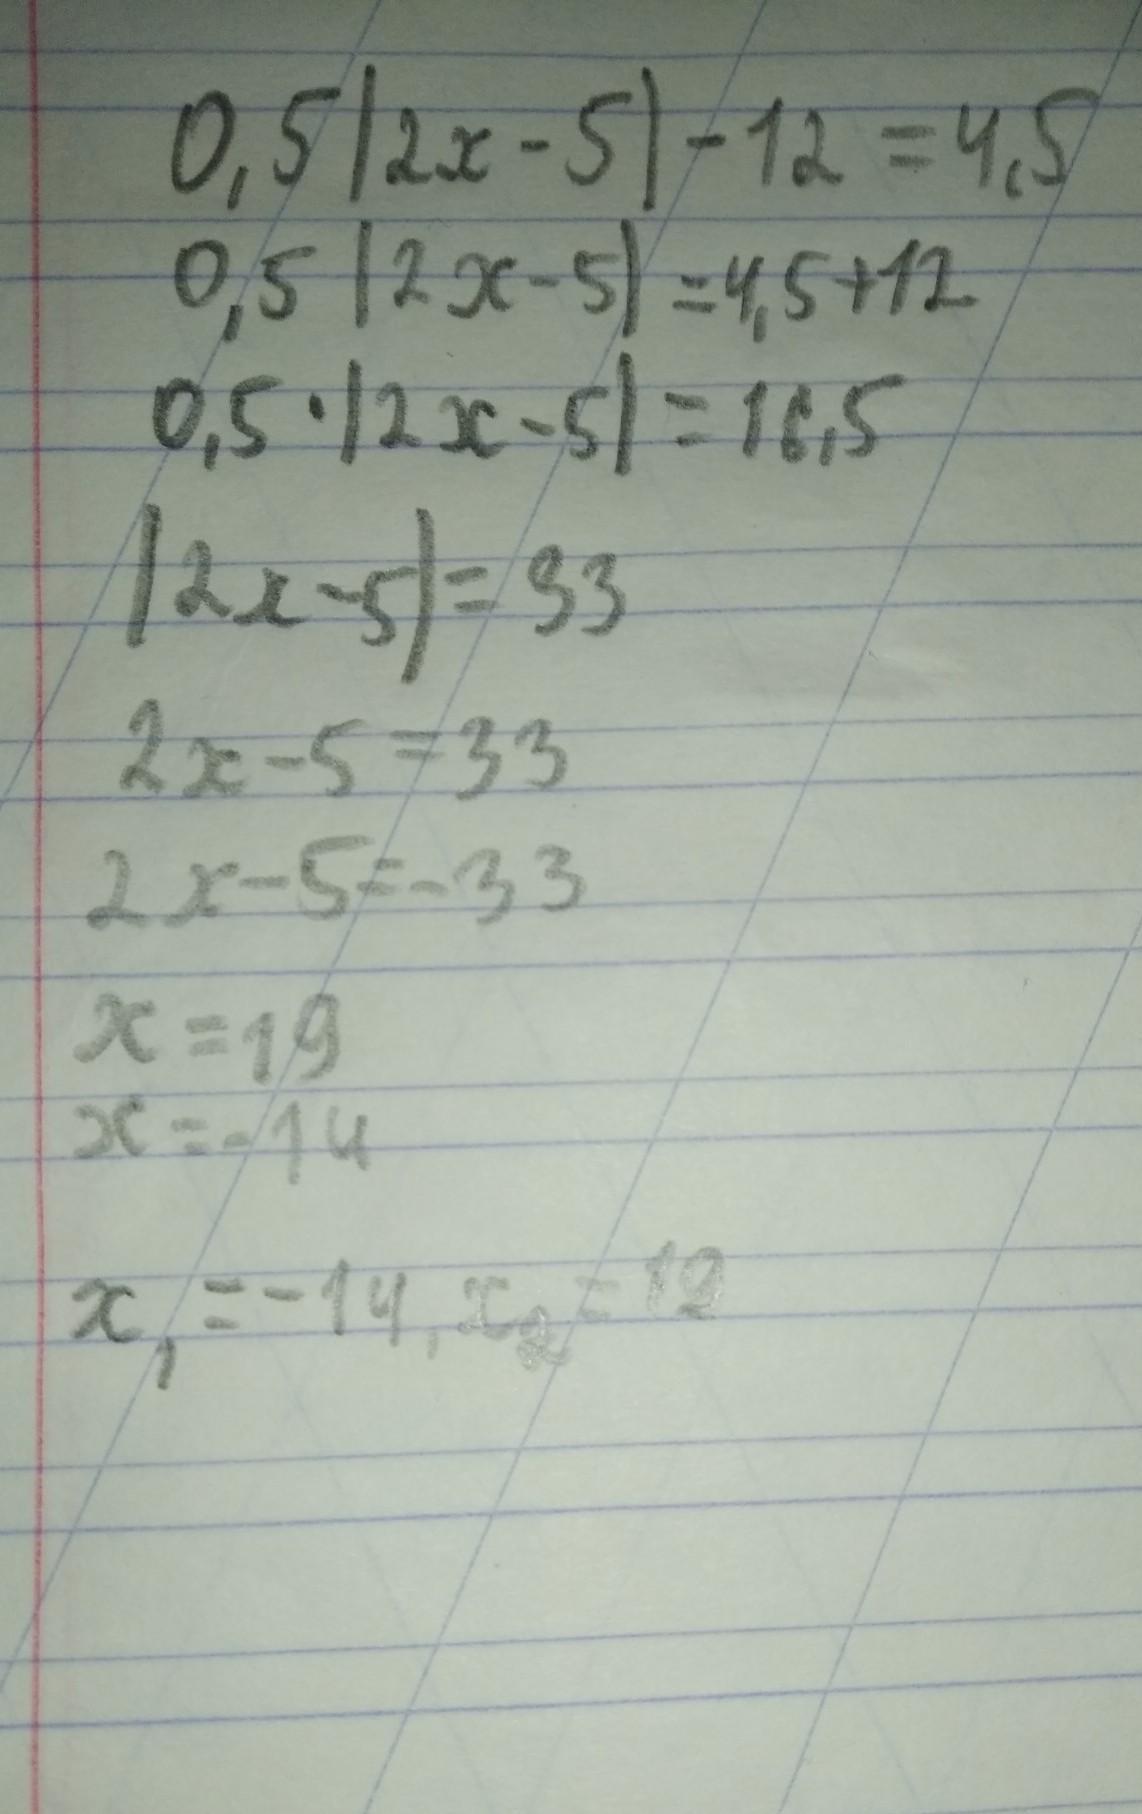 0,5|2x-5|-12=4,5
0,5|2x-5|=4,5+12
0,5·|2x-5|=16,5
|2x-5|=33
2x-5=33
2x-5=-33
x=19
x=-14
x₁=-14, x₂=19